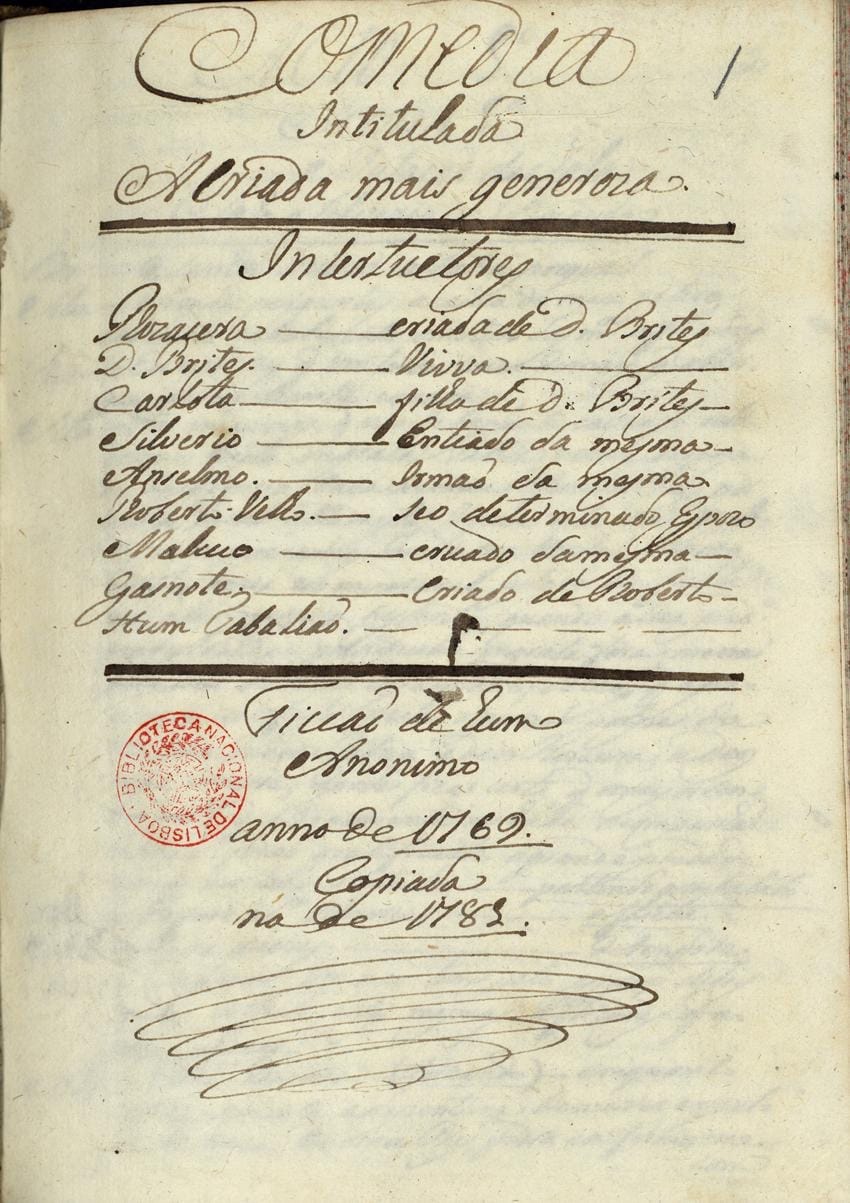 Comedia
1
Intitulada
A Criada mais generoza.
Interluctores
criada de D. Brites
D. Brites. Viuva.
Carlota filha de D. Brites
Silverio Entiado da mesma
Anselmo. Irmaõ da mesma
Roberto Velho. seo determinado Espozo
criado da mesma
Gasnote; Criado de Roberto
Hum Tabaliaõ.
Ficcaõ de hum
Anonimo
BIBLIOTECA NACIONAL DE LISBOA
anno de 1769.
Copiada
na de 1783.